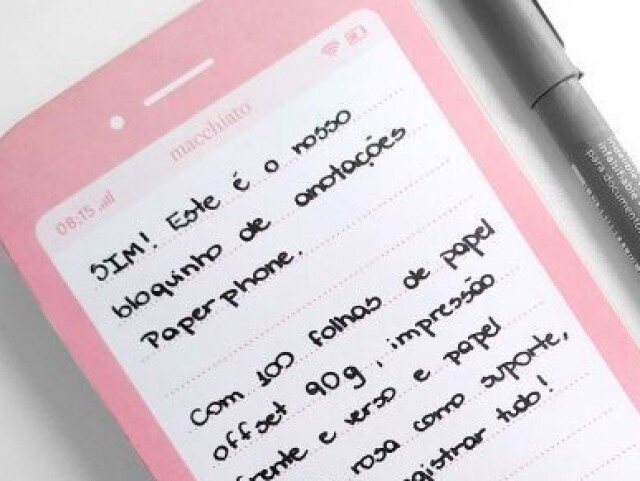 macchiato
08:15
SIM! Este é o nosso
bloquinho de anotações
Paperphone.
Com 100 folhas de papel
offset 90g, impressão
frente e verso e papel
rosa como suporte,
registrar tudo!
para documen